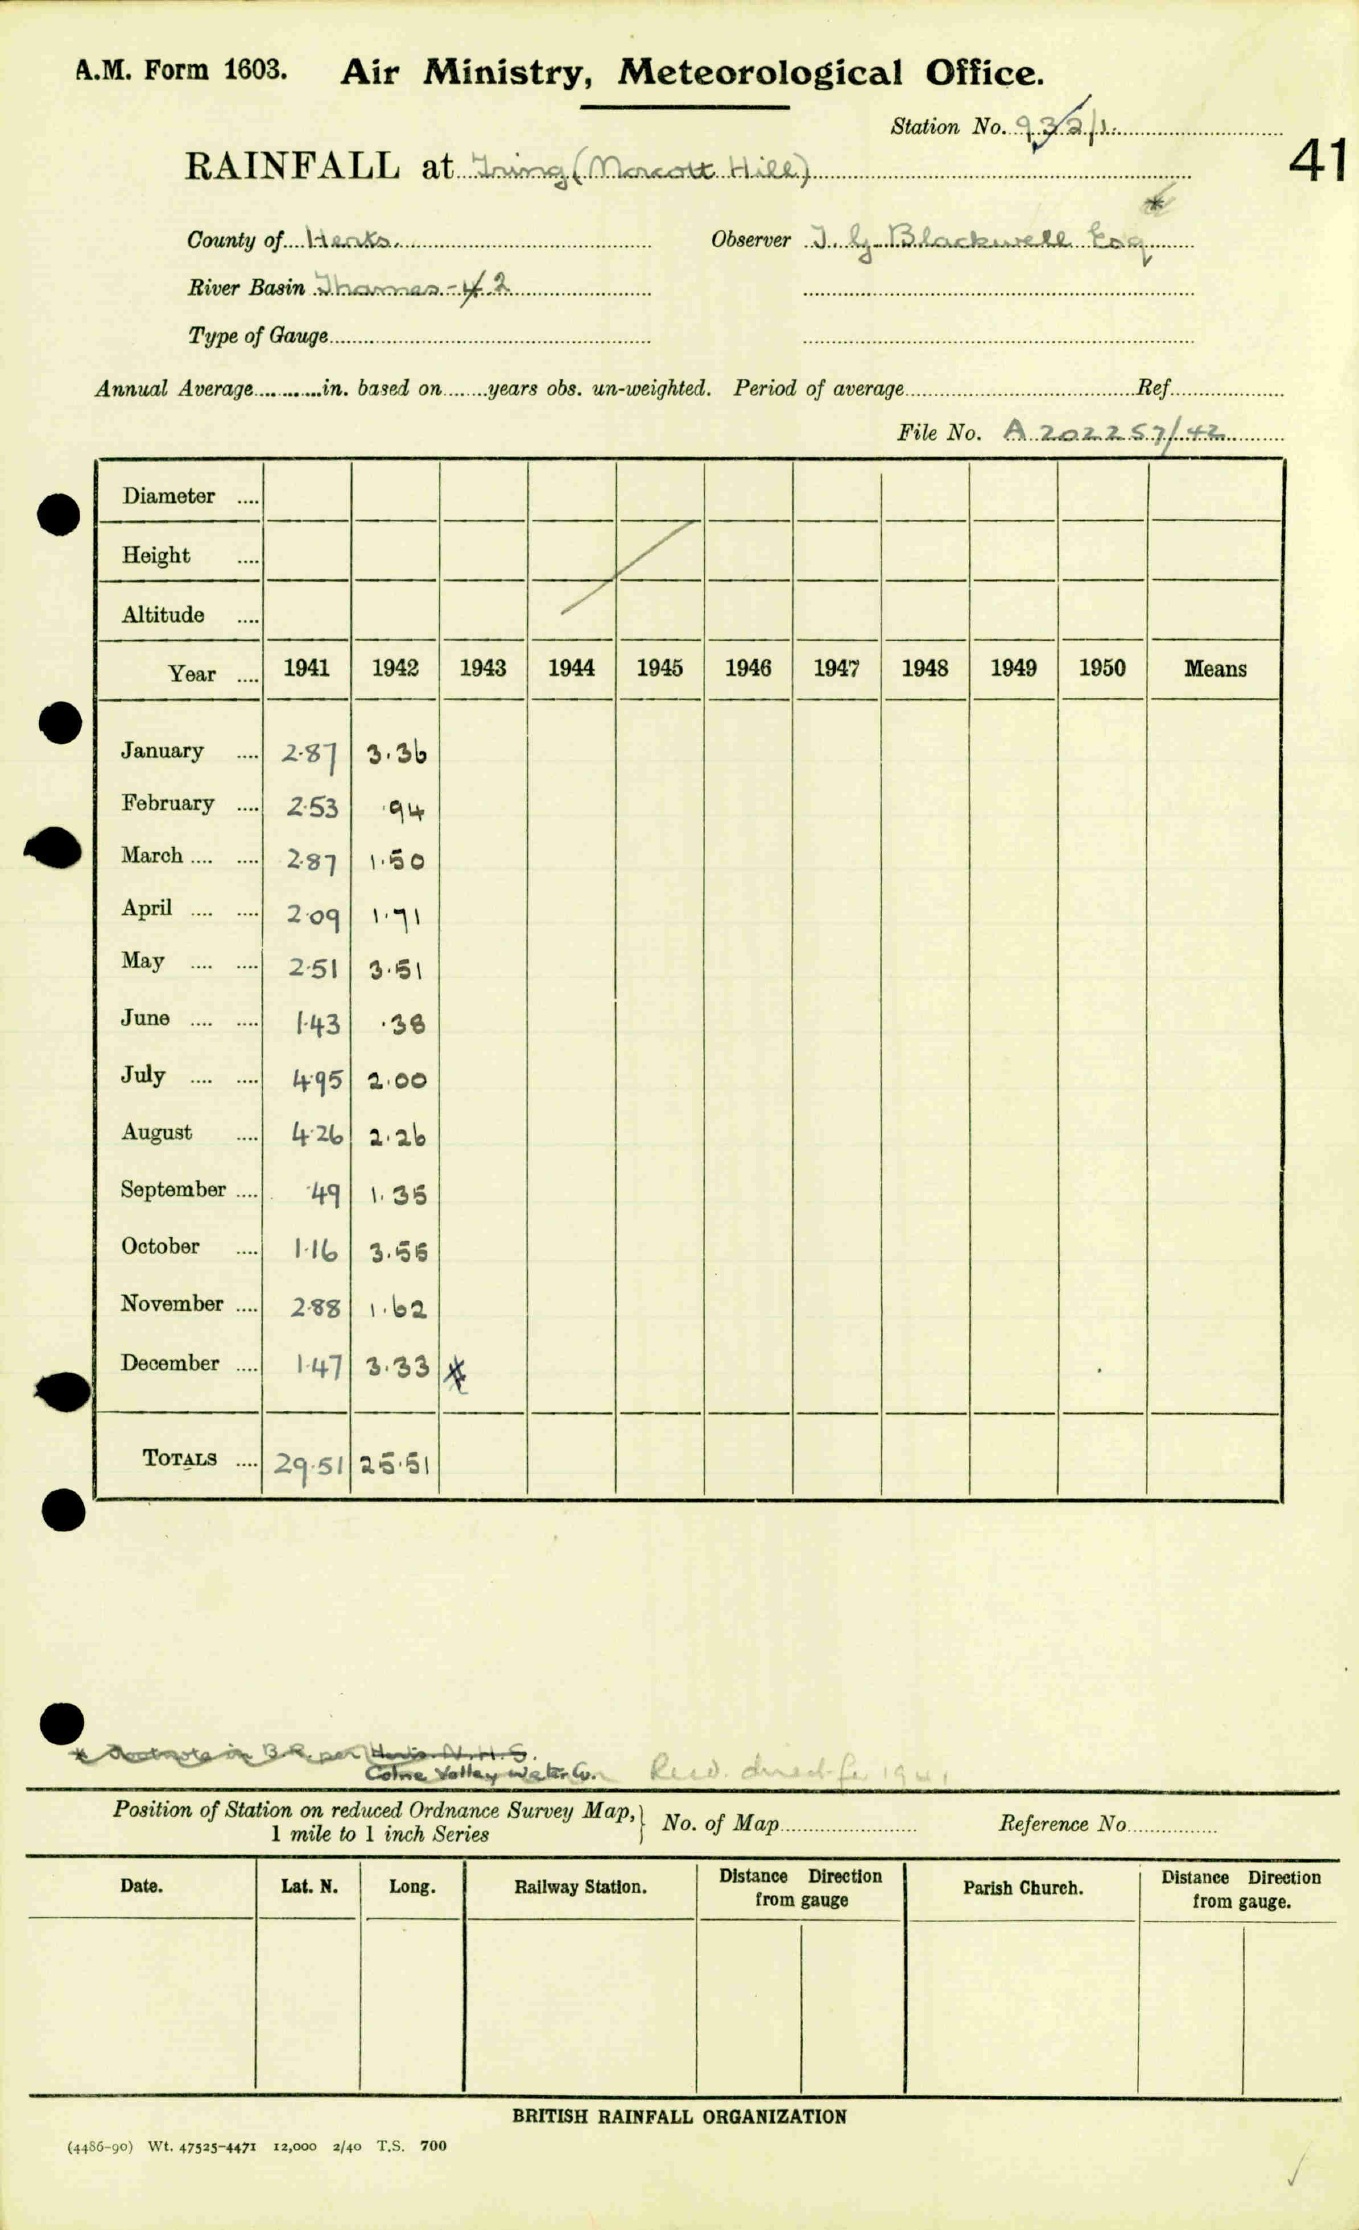 A.M. Form 1603. Air Ministry, Meteorological Office.
Station No. 932/1.
RAINFALL at Tring (Marcott Hill)
41
County of Herts. Observer T. G. Blackwell Esq *
River Basin Thames - 4 2
Type of Gauge
Annual Average in. based on years obs. un-weighted. Period of average Ref.
File No. A 202257/42
Diameter ....
Height ....
Altitude ....
Year .... 1941 1942 1943 1944 1945 1946 1947 1948 1949 1950 Means
January .... 2.87 3.36
February .... 2.53 .94
March .... .... 2.87 1.50
April .... .... 2.09 1.71
May .... .... 2.51 3.51
June .... .... 1.43 .38
July .... .... 4.95 2.00
August .... 4.26 2.26
September .... .49 1.35
October .... 1.16 3.55
November .... 2.88 1.62
December .... 1.47 3.33 *
TOTALS .... 29.51 25.51
* footnote in B.R. per Herts. N.H.S.
Colne Valley Water Co. Recd. direct for 1941
Position of Station on reduced Ordnance Survey Map, } No. of Map Reference No.
1 mile to 1 inch Series
Date. Lat. N. Long. Railway Station. Distance Direction from gauge Parish Church. Distance Direction from gauge.
BRITISH RAINFALL ORGANIZATION
(4486-90) Wt. 47525-4471 12,000 2/40 T.S. 700